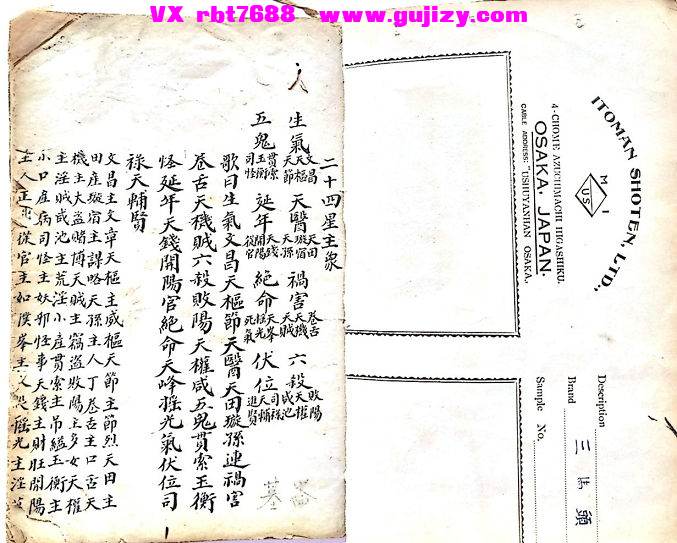 VX rbt7688 www.gujizy.com
二十四星主象
生氣 文昌 天樞 天節 天醫 天田 璇宿 天孫 禍害 卷舌 天機 天賊 六殺 敗陽 天權 咸池
五鬼 貫索 玉衡 司怪 延年 天錢 開陽 從官 絕命 天峯 搖光 死氣 伏位 司祿 天輔 進賢
歌曰生氣文昌天樞節天醫天田璇孫連禍害
卷舌天機賊六殺敗陽天權咸五鬼貫索玉衡
怪延年天錢開陽官絕命天峰搖光氣伏位司
祿天輔賢
文昌主文章天樞主威權天節主節烈天田主
田產璇宿主謀略天孫主人丁卷舌主口舌天
機主大盜賭博天賊主竊盜敗陽主多女天權
主淫賊咸池主荒淫小產貫索主吊縊玉衡主
小口虛病司怪主妖邪怪事天錢主財旺開陽
主人正 從官主如僕峯主 搖光主淫
ITOMAN SHOTEN, LTD.,
M I
US
4-CHOME AZUCHIMACHI HIGASHIKU,
OSAKA, JAPAN.
CABLE ADDRESS: "USHUYANHAN OSAKA."
Description
Brand 三馬頭
Sample No.